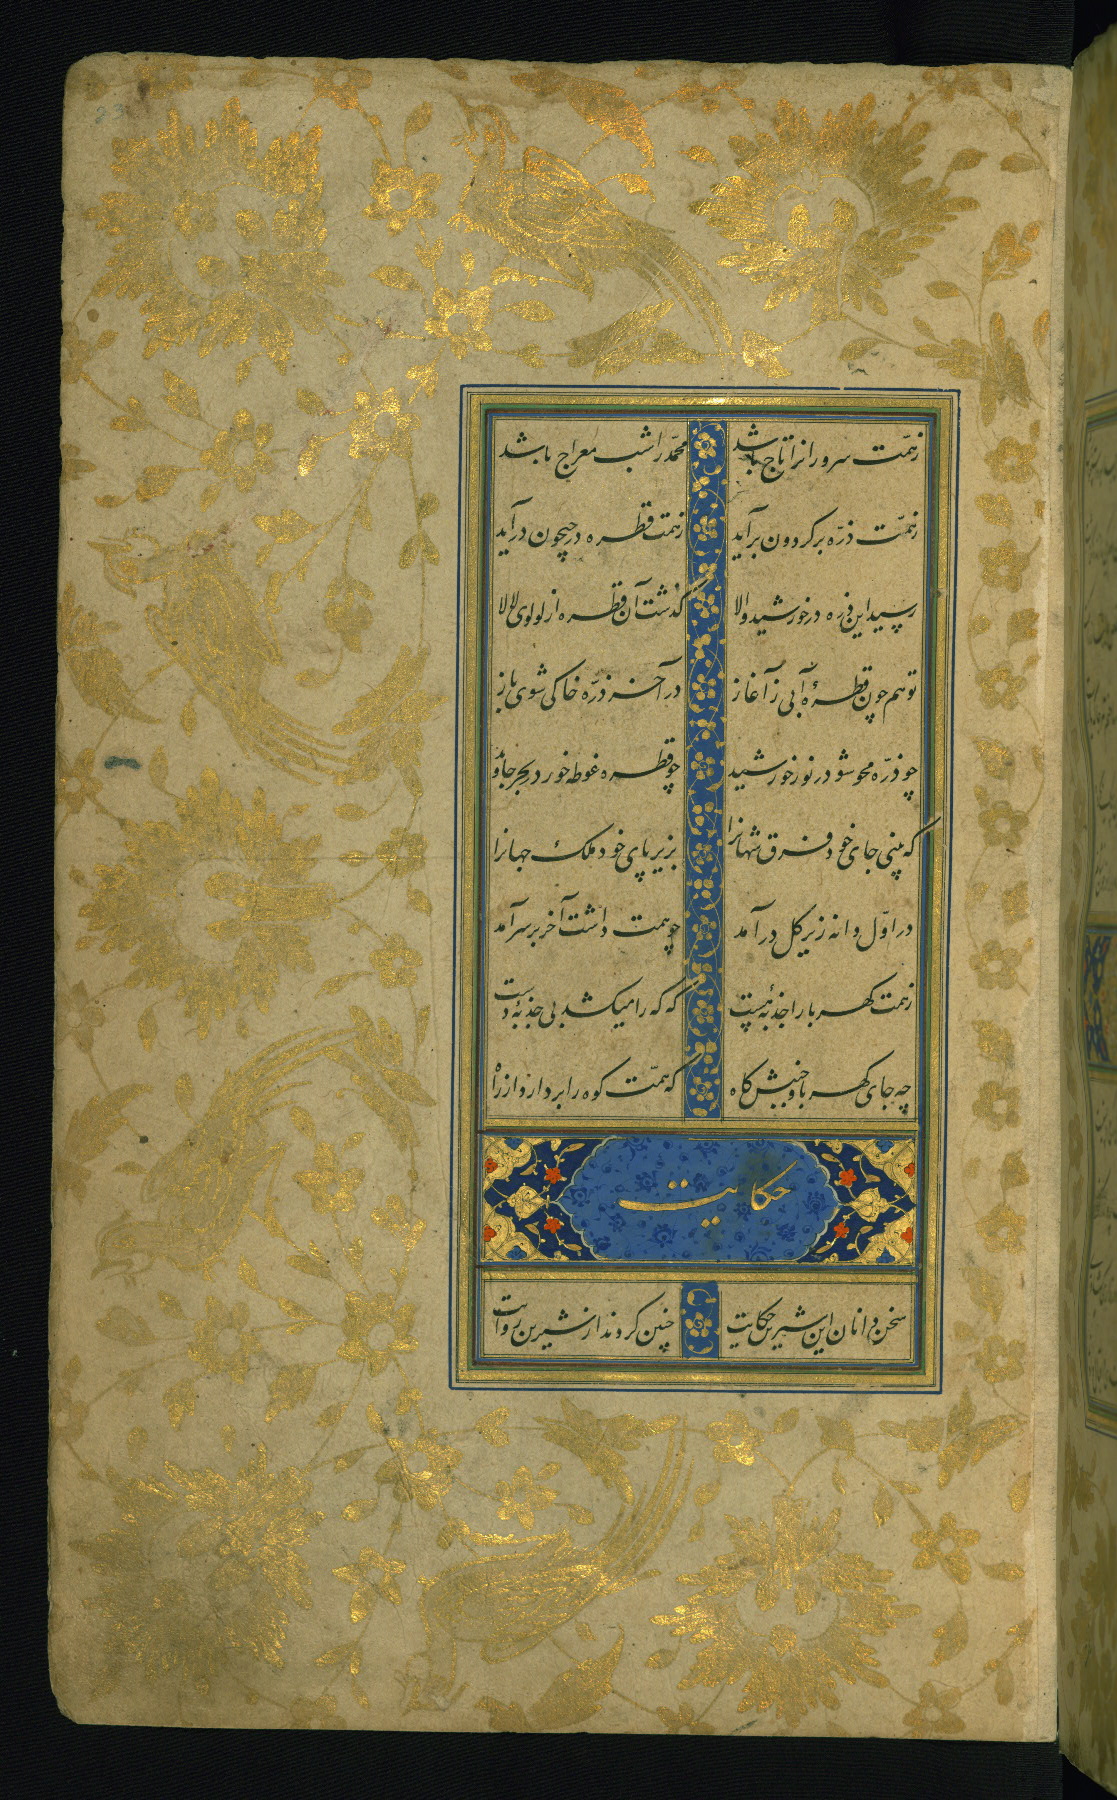 23
زهمّت سرورانرا تاج باشد محمّد را شب معراج باشد
زهمّت ذرّه بر کردون برآید زهمت قطره در جیحون درآید
رسید این ذرّه در خورشید والا کذشت آن قطره از لولوی لالا
تو هم چون قطرهٔ آبی ز آغاز در آخر ذرّه خاکی شوی باز
چو ذرّه محو شو در نور خورشید چو قطره غوطه خور در بحر جاوید
که بینی جای خود فرق شهانرا بزیر پای خود ملک جهانرا
در اوّل دانه زیر کل درآمد چو همت داشت آخر بر سر آمد
زهمت کهربا را جذبهٔ هست که که را میکشد بی جذبهٔ دست
چه جای کهربا و جنبش کاه که همّت کوه را بردارد از راه
حکایت
سخن دانان این شیرین حکایت چنین کردند از شیرین روایت